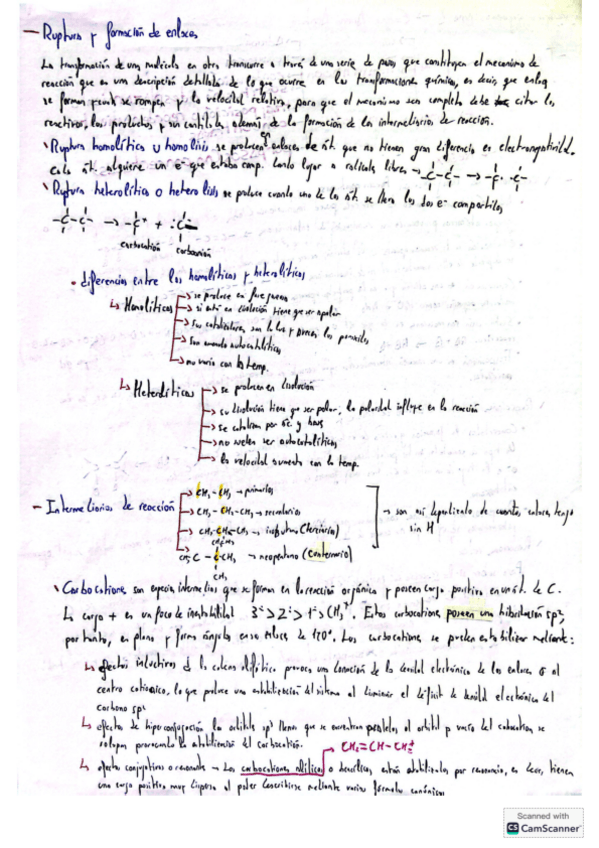 - Ruptura y formación de enlaces
La transformación de una molécula en otra transcurre a través de una serie de pasos que constituyen el mecanismo de
reacción que es una descripción detallada de lo que ocurre en las transformaciones químicas, es decir, que enlaces
se forman y cual se rompen y la velocidad relativa, para que el mecanismo sea completo debe citar los
reactivos, los productos y sus cantidades además de la formación de los intermediarios de reacción.
Ruptura homolítica u homolisis se producen en enlaces de át. que no tienen gran diferencia de electronegatividad.
Cada át. adquiere un e- que estaba comp. dando lugar a radicales libres → -C-C- → -C· ·C-
Ruptura heterolítica o heterolisis se produce cuando uno de los át. se lleva los dos e- compartidos
-C-C- → -C+ + :C-
carbocatión carboanión
• diferencias entre las homolíticas y heterolíticas
↳ Homolíticas → se produce en fase gaseosa
→ si está en disolución tiene que ser apolar
→ Sus catalizadores son la luz y los peróxidos
→ Son a menudo autocatalíticas
→ no varía con la temp.
↳ Heterolíticas → se producen en disolución
→ su disolución tiene que ser polar, la polaridad influye en la reacción
→ se catalizan por ác. y bases
→ no suelen ser autocatalíticas
→ la velocidad aumenta con la temp.
- Intermediarios de reacción → CH3 - CH3 → primarios
→ CH3 - CH2 - CH3 → secundarios
→ CH3 - CH - CH3 → isobutano (terciario)
→ son así dependiendo de cuantos enlaces tenga
sin H
CH3
CH3C - C - CH3 → neopentano (cuaternario)
CH3
Carbocationes son especies intermedias que se forman en la reacción orgánica y poseen carga positiva en un át. de C.
La carga + es un foco de inestabilidad 3º > 2º > 1º > CH3+. Estos carbocationes poseen una hibridación sp2,
por tanto, es plano y forma ángulos en sus enlaces de 120º. Los carbocationes se pueden estabilizar mediante:
↳ efectos inductivos de la cadena alifática provoca una donación de la densidad electrónica de los enlaces σ al
centro catiónico, lo que produce una estabilización del sistema al disminuir el déficit de densidad electrónica del
carbono sp2
↳ efectos de hiperconjugación los orbitales sp3 llenos que se encuentran paralelos al orbital p vacío del carbocatión, se
solapan provocando la estabilización del carbocatión.
CH2=CH-CH2+
↳ efectos conjugativos o resonante → Los carbocationes alílicos o bencílicos están estabilizados por resonancia, es decir, tienen
una carga positiva muy dispersa al poder describirse mediante varias formulas canónicas
Scanned with
CS CamScanner